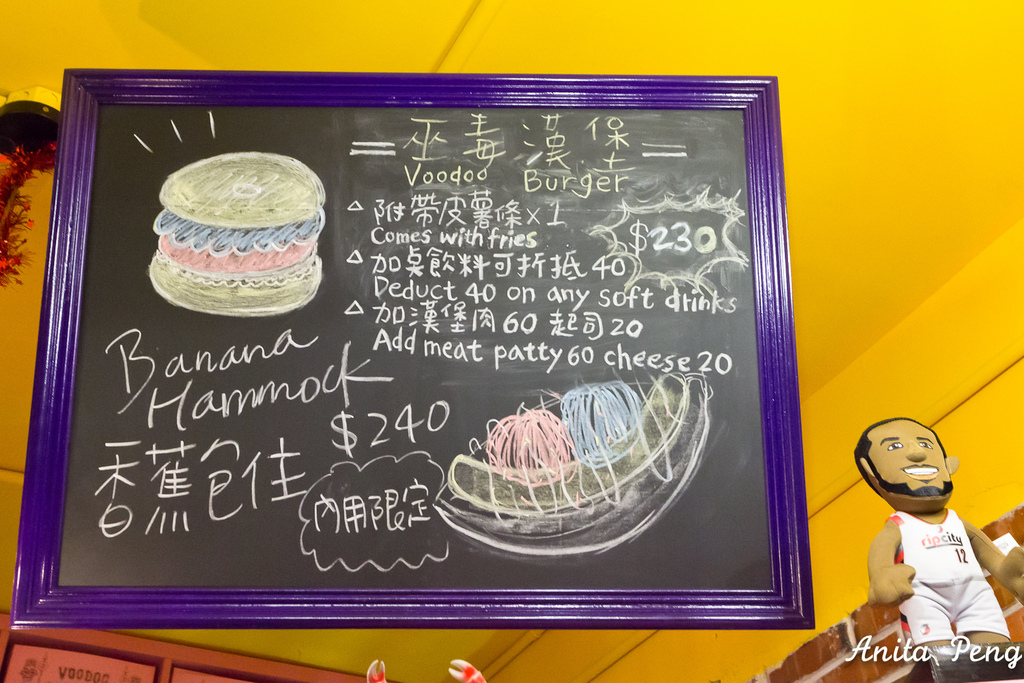 巫毒漢堡
Voodoo Burger
△ 附帶皮薯條x1
Comes with fries
$230
△ 加桌飲料可折抵40
Deduct 40 on any soft drinks
△ 加漢堡肉60 起司20
Add meat patty 60 cheese 20
Banana
Hammock
$240
香蕉包佳
內用限定
ripcity
12
VOODOO
Anita Peng